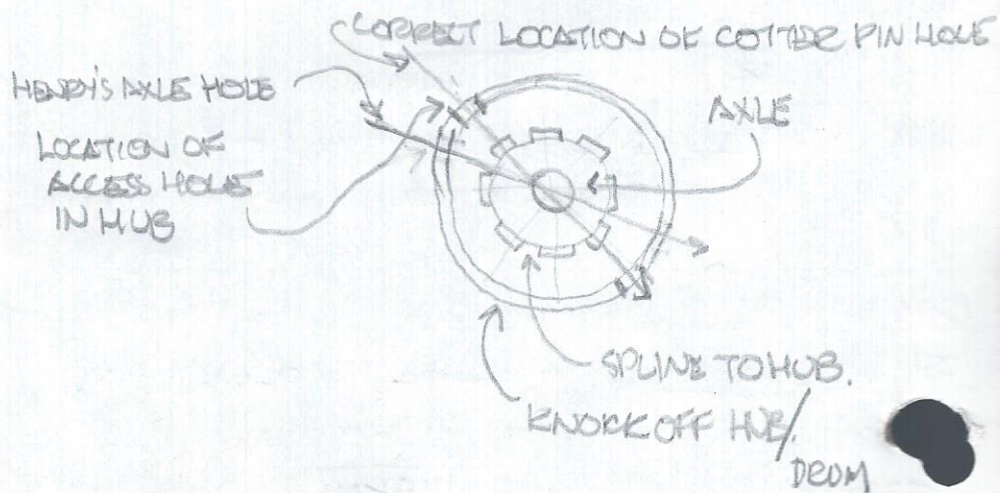 CORRECT LOCATION OF COTTER PIN HOLE
HENRY'S AXLE HOLE
AXLE
LOCATION OF
ACCESS HOLE
IN HUB
SPLINE TO HUB.
KNOCK OFF HUB/
DRUM